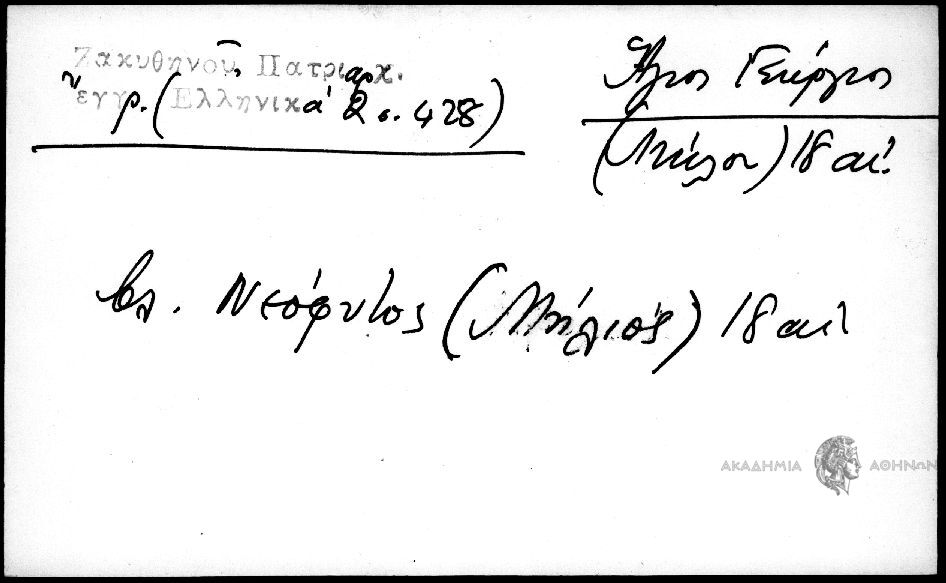 Ζακυθηνοῦ, Πατριαρχ.
ἔγγρ. (Ἑλληνικά 2 σ. 428)
Ἅγιος Γεώργιος
(Μῆλος) 18 αἰ.
βλ. Νεόφυτος (Μήλιος) 18 αἰ
ΑΚΑΔΗΜΙΑ ΑΘΗΝΩΝ